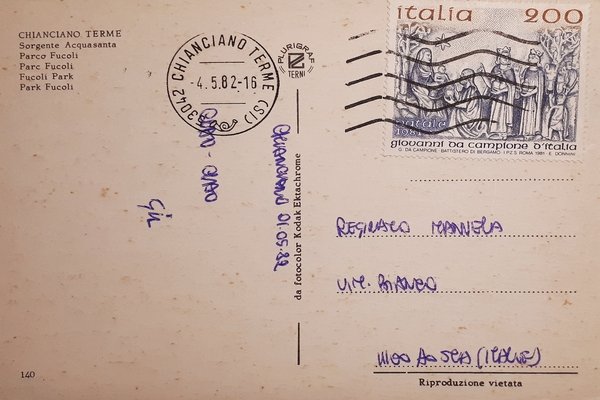 CHIANCIANO TERME
Sorgente Acquasanta
Parco Fucoli
Parc Fucoli
Fucoli Park
Park Fucoli
53042 CHIANCIANO TERME (SI)
- 4.5.82-16
PLURIGRAF
TERNI
italia 200
natale
1981
giovanni da campione d'italia
G. DA CAMPIONE - BATTISTERO DI BERGAMO I.P.Z.S. ROMA 1981 E. DONNINI
CHIANCIANO 01.05.82
CIAO - CIAO
da fotocolor Kodak Ektachrome
REGINALD MANNELA
VIA
11100 AOSTA (ITALIE)
140
Riproduzione vietata